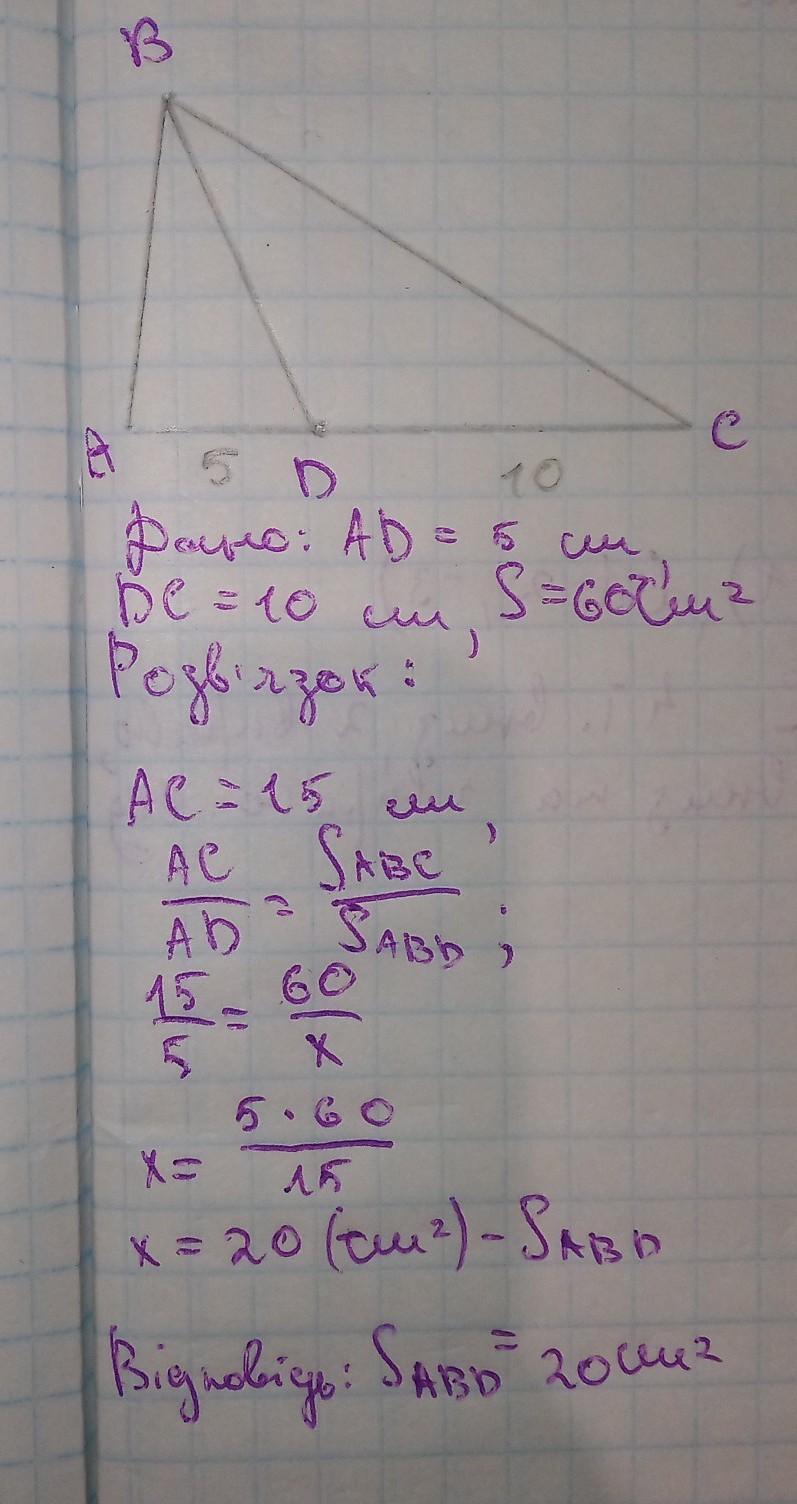 B
A 5 D 10 C
Дано: AD = 5 см,
DC = 10 см, S = 60 см²
Розв'язок:
AC = 15 см,
AC/AD = S_ABC/S_ABD;
15/5 = 60/x
x = 5·60/15
x = 20 (см²) - S_ABD
Відповідь: S_ABD = 20 см²